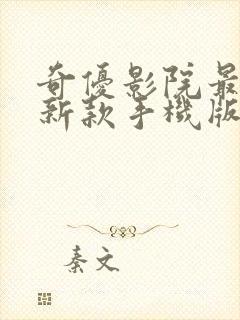 奇優影院最
新款手機版
秦文